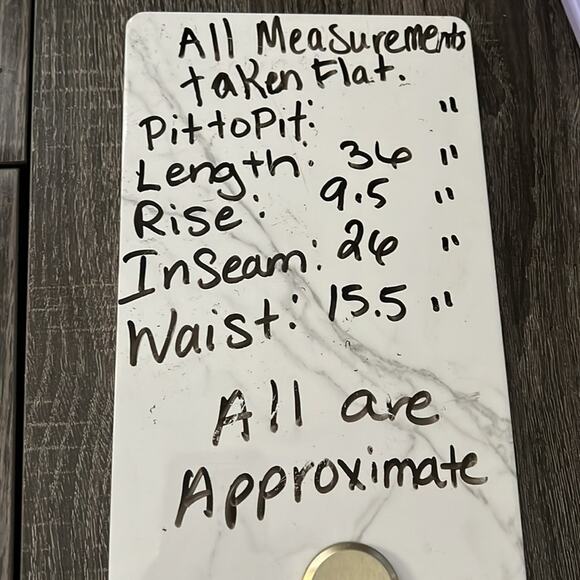 All Measurements
taken Flat.
Pit to Pit: "
Length: 36 "
Rise: 9.5 "
InSeam: 26 "
Waist: 15.5 "
All are
Approximate